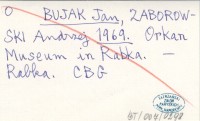 O BUJAK Jan, ZABOROW-
SKI Andrzej 1969. Orkan
Museum in Rabka. —
Rabka. CBG